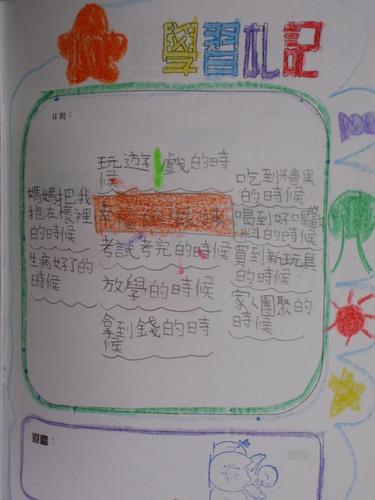 學習札記
日期：
玩遊戲的時
候
考試考完的時候
放學的時候
拿到錢的時
候
媽媽把我
抱在懷裡
的時候
生病好了的
時候
吃到糖果
的時候
喝到好喝
料的時候
買到新玩具
的時候
家人團聚的
時候